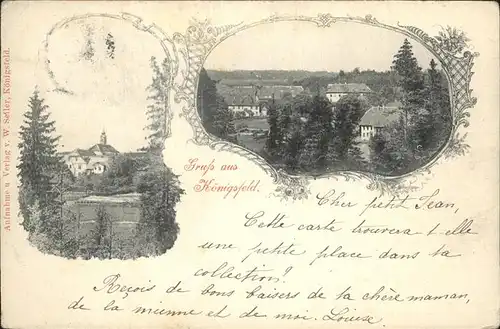 Aufnahme u Verlag v. W. Seiler, Königsfeld.
Gruß aus
Königsfeld.
Cher petit Jean,
Cette carte trouvera t-elle
une petite place dans ta
collection?
Reçois de bons baisers de ta chère maman,
de la mienne et de moi. Louise